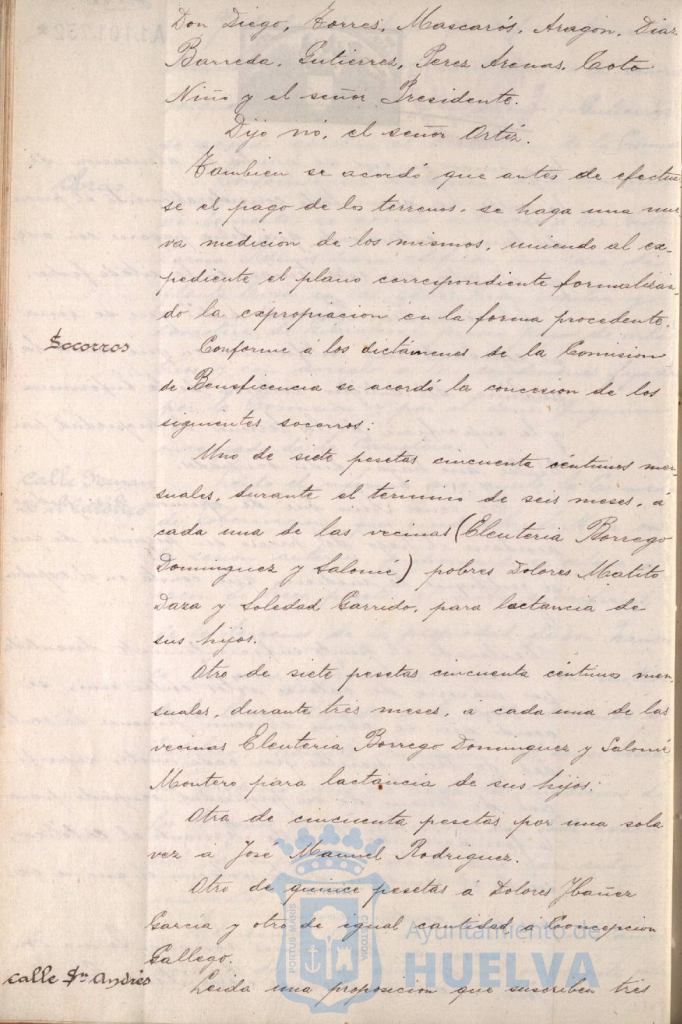 Don Diego, Torres, Mascarós, Aragon, Diaz
Barreda, Gutierrez, Perez Arenas, Coto
Niño y el señor Presidente.
Dijo nó, el señor Ortíz.
Tambien se acordó que antes de efectuar
se el pago de los terrenos, se haga una nue
va medicion de los mismos, uniendo al ex-
pediente el plano correspondiente formalizán
do la expropiacion en la forma procedente.
Socorros
Conforme á los dictámenes de la Comision
de Beneficencia se acordó la concesion de los
siguientes socorros:
Uno de siete pesetas cincuenta céntimos men
suales, durante el término de seis meses, á
cada una de las vecinas (Eleuteria Borrego
Dominguez y Salomé) pobres Dolores Matito
Daza y Soledad Garrido, para lactancia de
sus hijos.
Otro de siete pesetas cincuenta céntimos men
suales, durante tres meses, á cada una de las
vecinas Eleuteria Borrego Dominguez y Salomé
Montero para lactancia de sus hijos.
Otra de cincuenta pesetas por una sola
vez á José Manuel Rodriguez.
Otro de quince pesetas á Dolores Ybañez
Garcia y otro de igual cantidad á Concepcion
Gallego.
Calle Sn Andrés
Leida una proposicion que suscriben tres
PORTUS MARIS
ET TERRE CUSTODIA
Ayuntamiento de
HUELVA